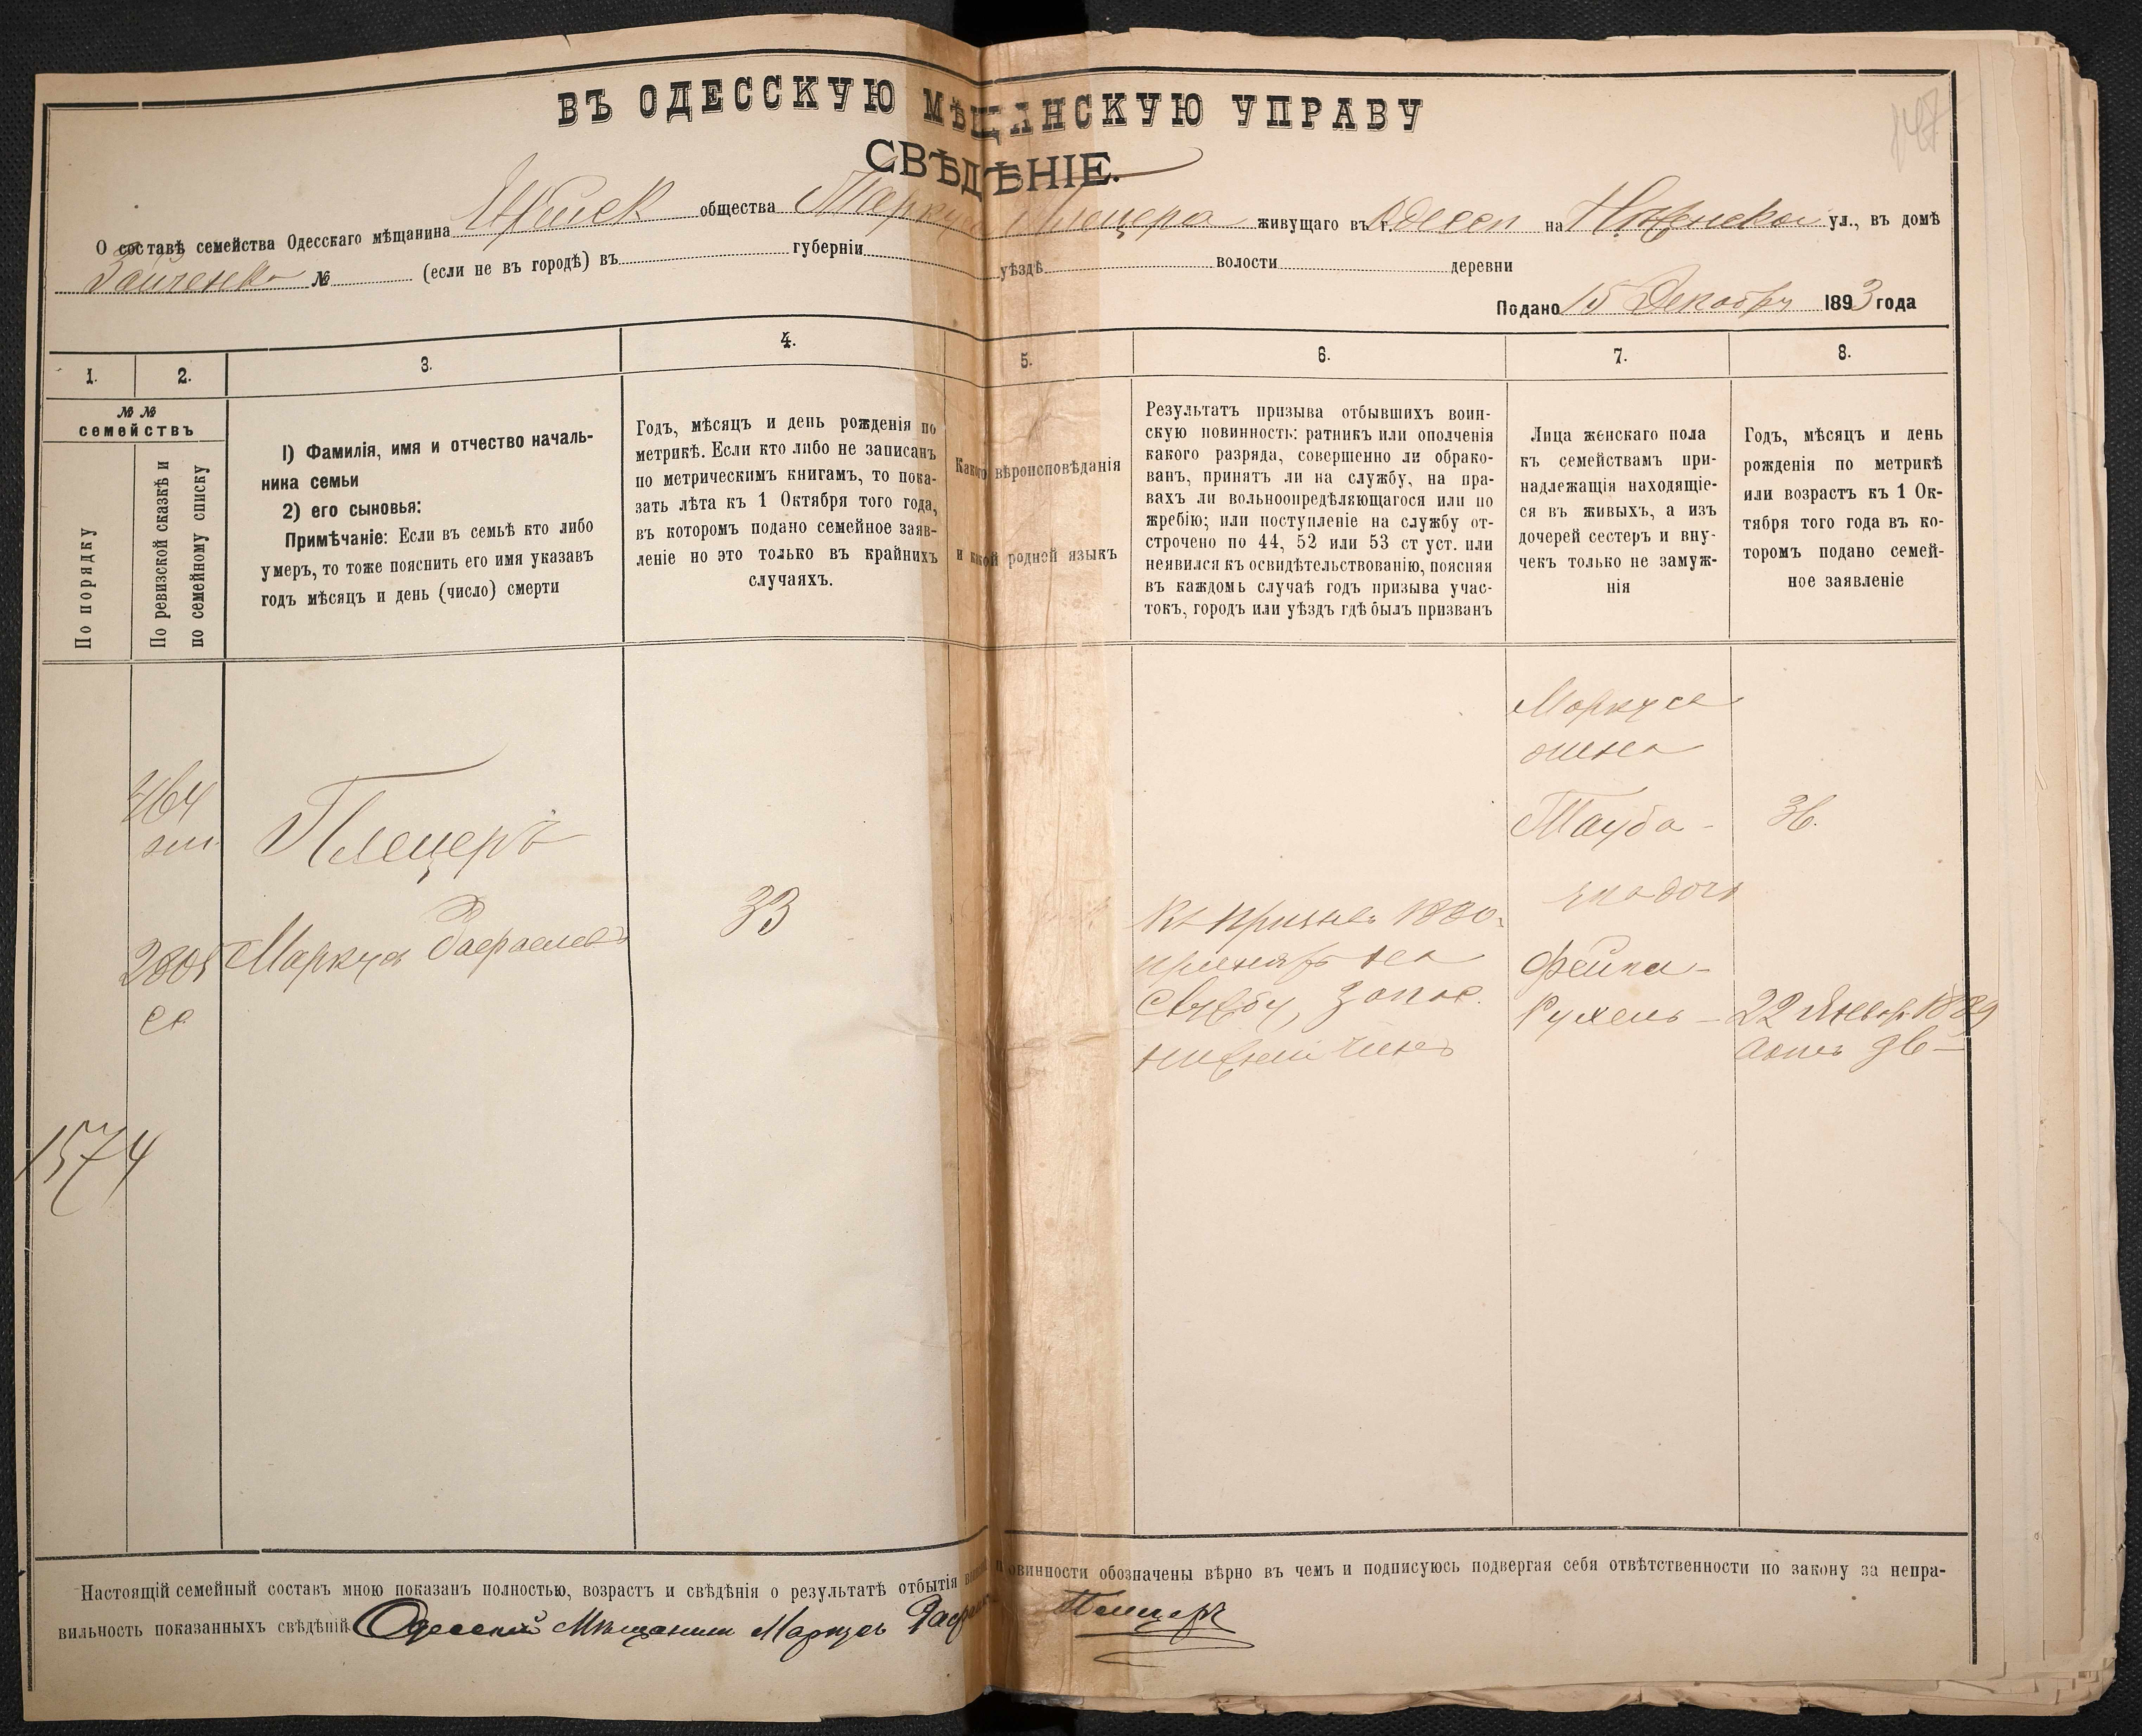 ВЪ ОДЕССКУЮ МѢЩАНСКУЮ УПРАВУ
СВѢДѢНІЕ.
О составѣ семейства Одесскаго мѣщанина общества Маркуса живущаго въ г. Одессѣ на Нѣжинской ул., въ домѣ
№ (если не въ городѣ) въ губерніи уѣздѣ волости деревни
Подано 15 Декабря 1893 года
1. 2. 3. 4. 5. 6. 7. 8.
№ №
семействъ
По порядку
По ревизской сказкѣ и
по семейному списку
1) Фамилія, имя и отчество началь-
ника семьи
2) его сыновья:
Примѣчаніе: Если въ семьѣ кто либо
умеръ, то тоже пояснить его имя указавъ
годъ мѣсяцъ и день (число) смерти
Годъ, мѣсяцъ и день рожденія по
метрикѣ. Если кто либо не записанъ
по метрическимъ книгамъ, то пока-
зать лѣта къ 1 Октября того года,
въ которомъ подано семейное заяв-
леніе но это только въ крайнихъ
случаяхъ.
Какого вѣроисповѣданія
и какой родной языкъ
Результатъ призыва отбывшихъ воин-
скую повинность: ратникъ или ополченія
какого разряда, совершенно ли обрако-
ванъ, принятъ ли на службу, на пра-
вахъ ли вольноопредѣляющагося или по
жребію; или поступленіе на службу от-
строчено по 44, 52 или 53 ст уст. или
неявился къ освидѣтельствованію, поясняя
въ каждомъ случаѣ годъ призыва учас-
токъ, городъ или уѣздъ гдѣ былъ призванъ
Лица женскаго пола
къ семействамъ при-
надлежащія находящіе-
ся въ живыхъ, а изъ
дочерей сестеръ и вну-
чекъ только не замуж-
нія
Годъ, мѣсяцъ и день
рожденія по метрикѣ
или возрастъ къ 1 Ок-
тября того года въ ко-
торомъ подано семей-
ное заявленіе
Маркуса
жена
Тауба - 36.
Плецеръ
Маркусъ 33
Къ призыву 1880
принятъ на
службу, запас.
нижній чинъ
Фейга-
Рухель - 22 Январ. 1889
1574
Настоящій семейный составъ мною показанъ полностью, возрастъ и свѣдѣнія о результатѣ отбытія повинности обозначены вѣрно въ чемъ и подписуюсь подвергая себя отвѣтственности по закону за непра-
вильность показанныхъ свѣдѣній Одесскій Мѣщанинъ Маркусъ Плецеръ